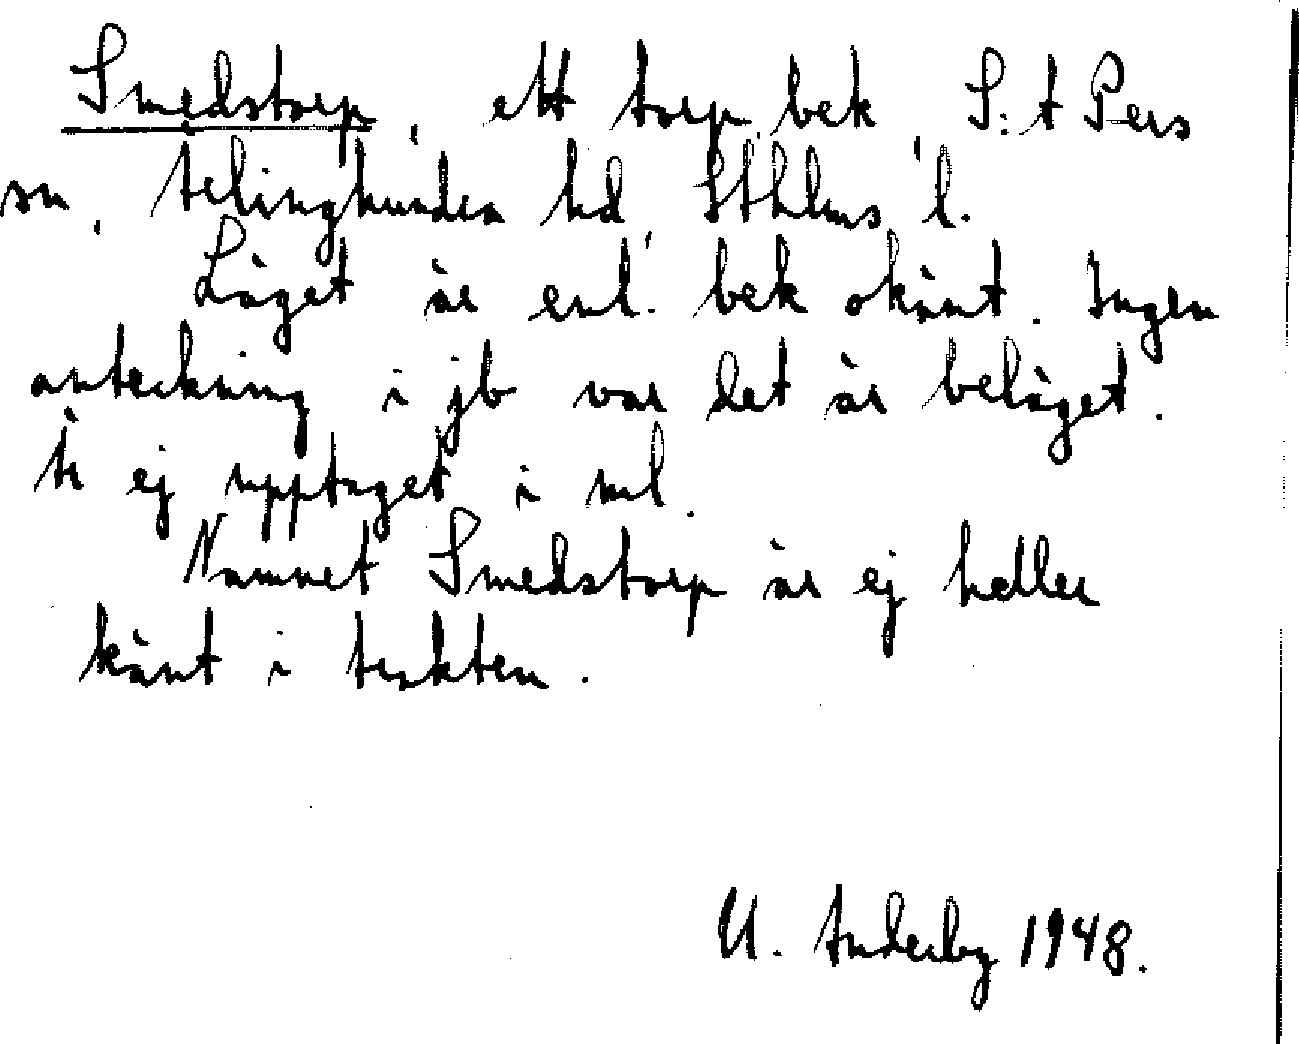 Smedstorp, ett torp, bek, S:t Pers
sn, Ærlinghundra hd, Sthlms l.
Läget är enl. bek okänt. Ingen
anteckning i jb var det är beläget.
Är ej upptaget i ml.
Namnet Smedstorp är ej heller
känt i trakten.
U. Anderby 1948.